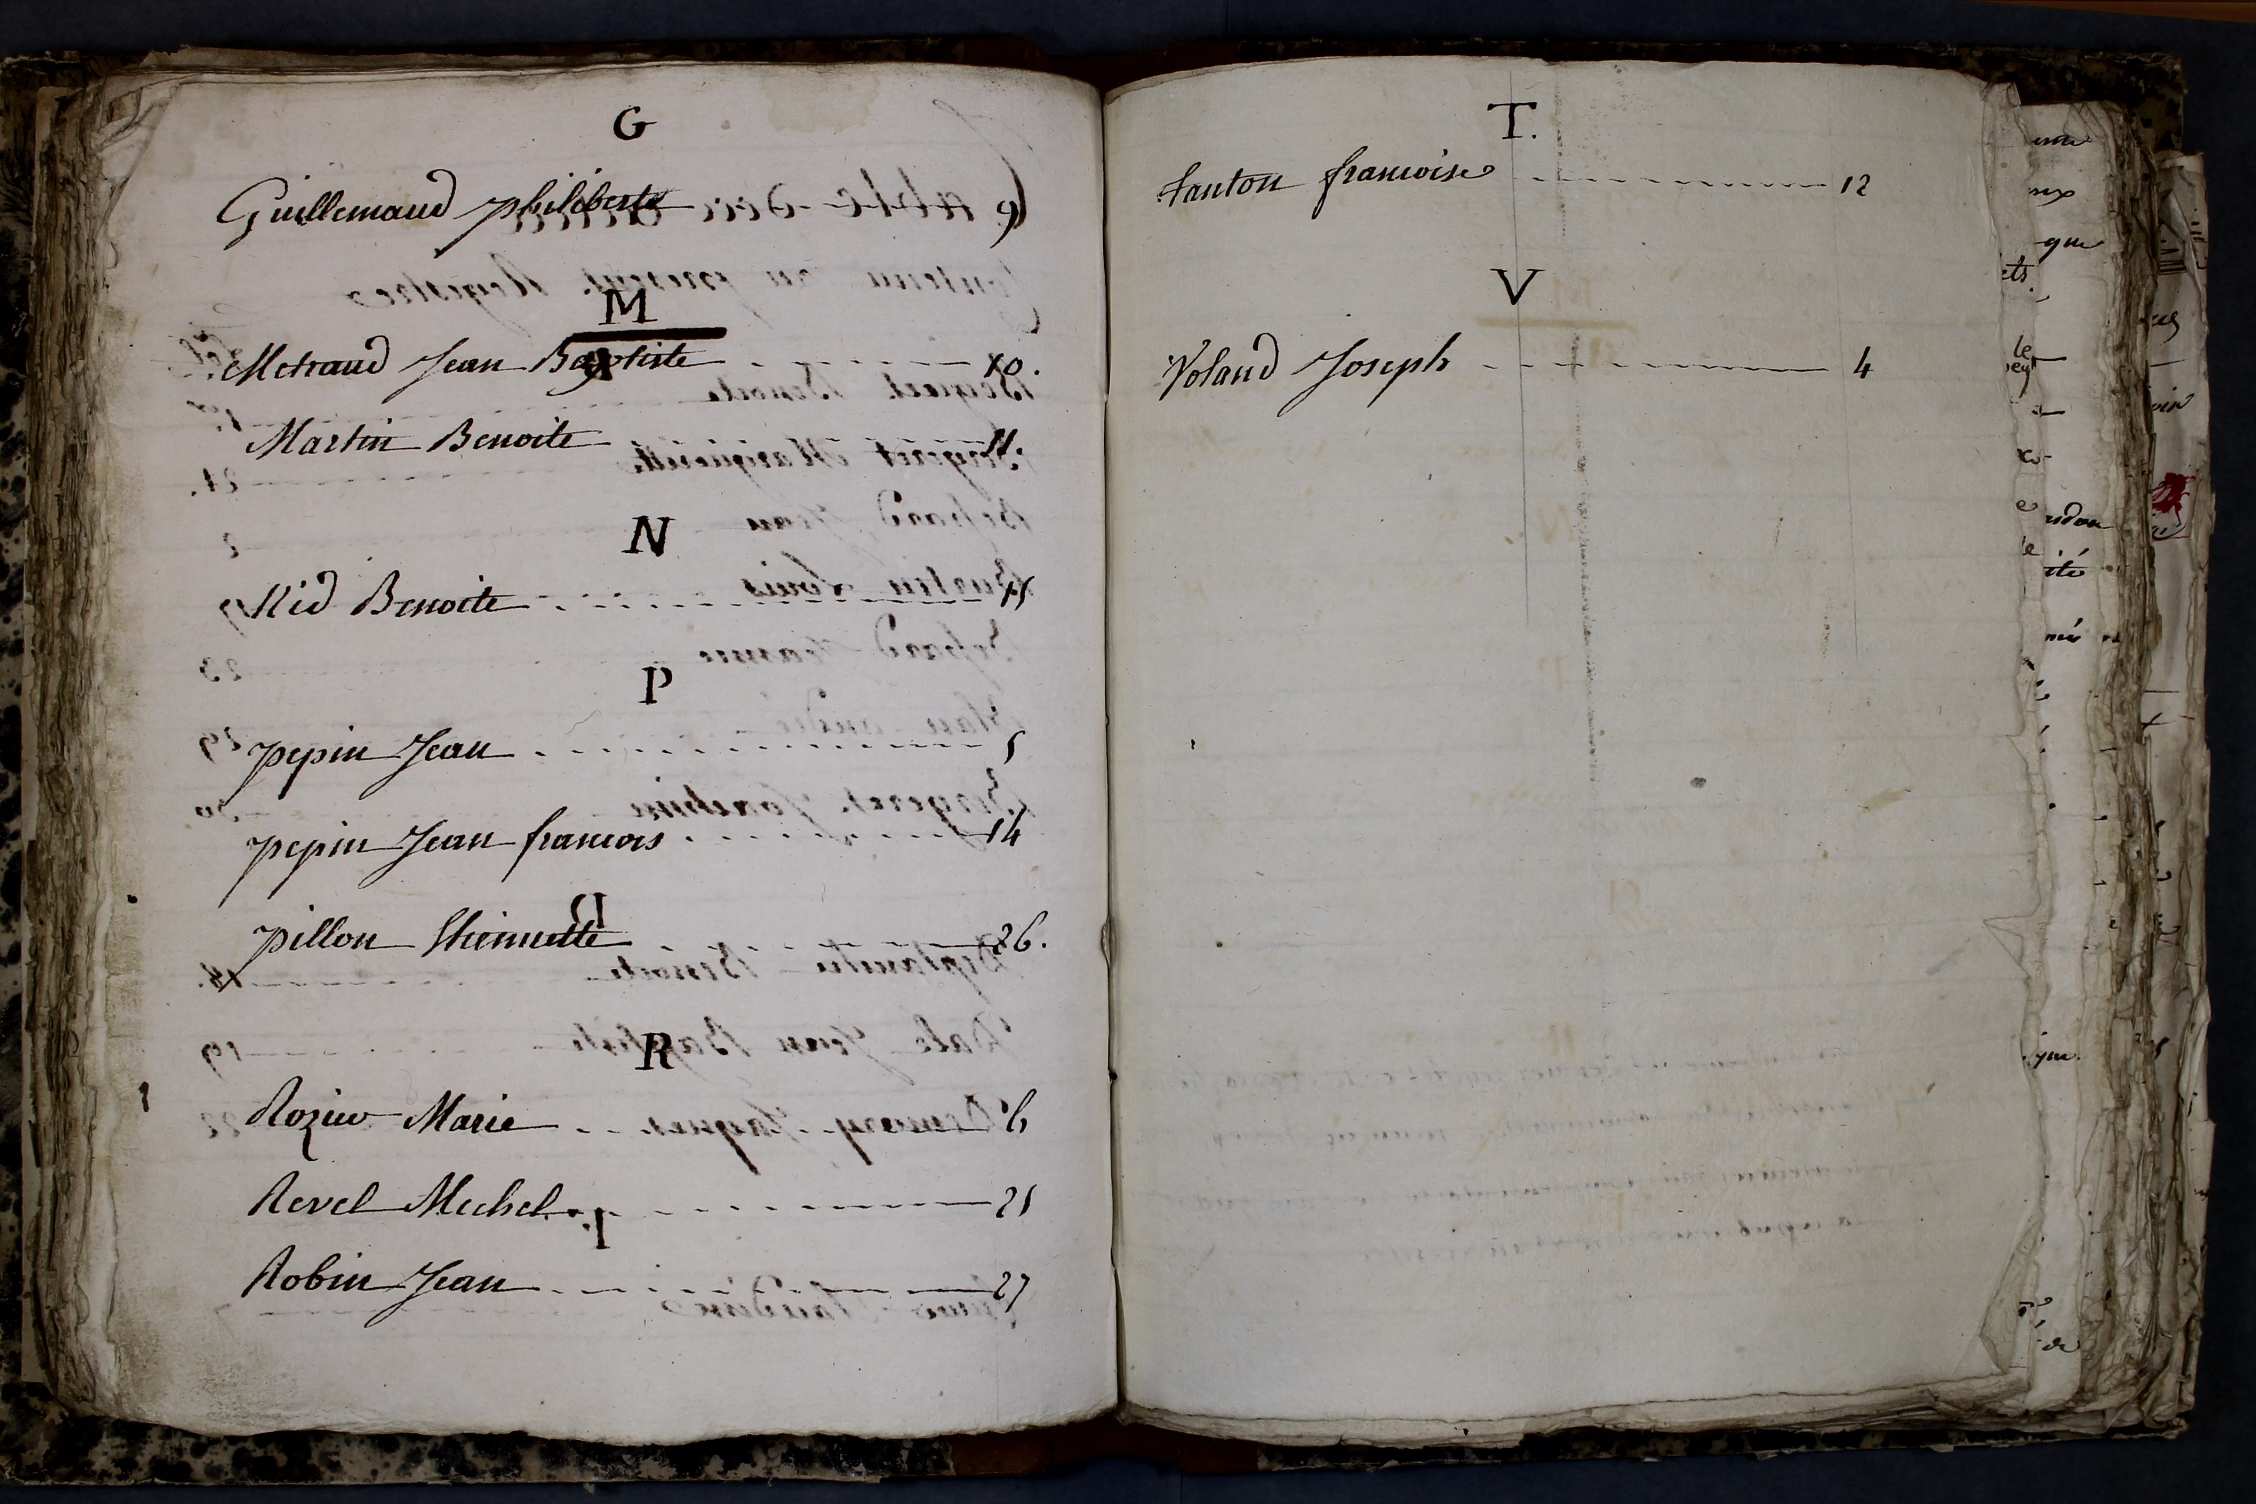 G
Guillemaud philiberte 9
M
Metraud Jean Baptiste 10.
Martin Benoite 11.
N
Nid Benoite 15
P
pepin Jean 5
pepin Jean francois 14
pillon Etiennette 26.
R
Rozier Marie 6
Revel Mechel 25
Robin Jean 27
T.
tanton francoise 12
V
Voland Joseph 4